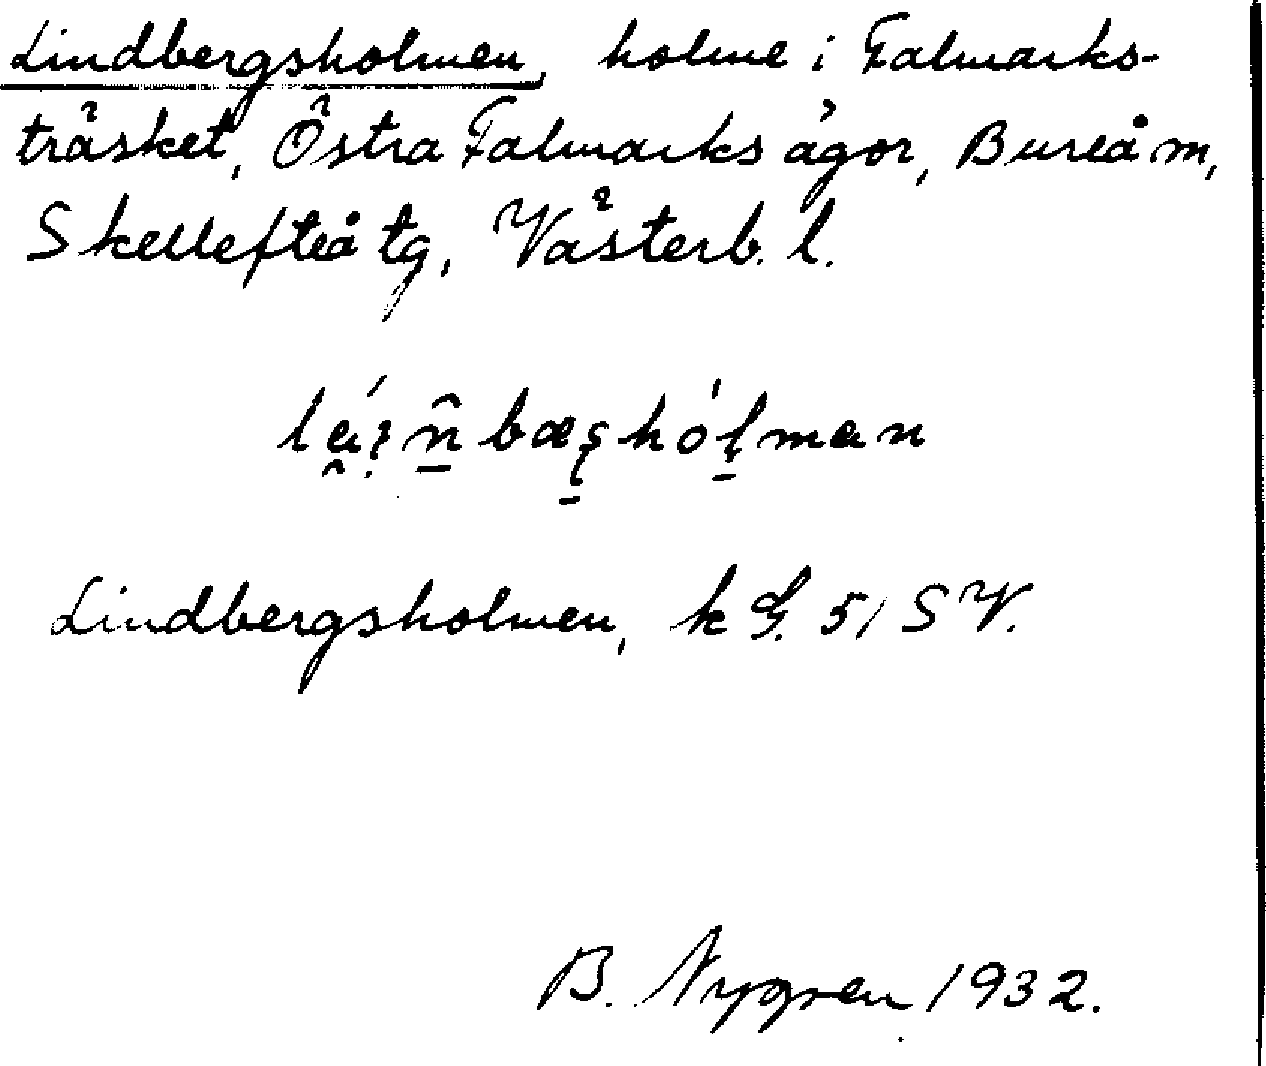 Lindbergsholmen, holme i Falmarks-
träsket, Östra Falmarks ägor, Bureå m,
Skellefteå tg, Västerb. l.
Lindbergsholmen, k G. 51 SV.
B. Nygren 1932.